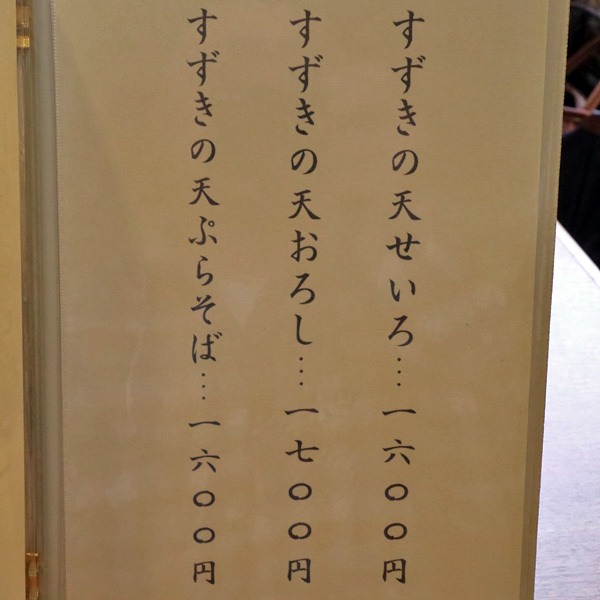 すずきの天せいろ…一六〇〇円
すずきの天おろし…一七〇〇円
すずきの天ぷらそば…一六〇〇円